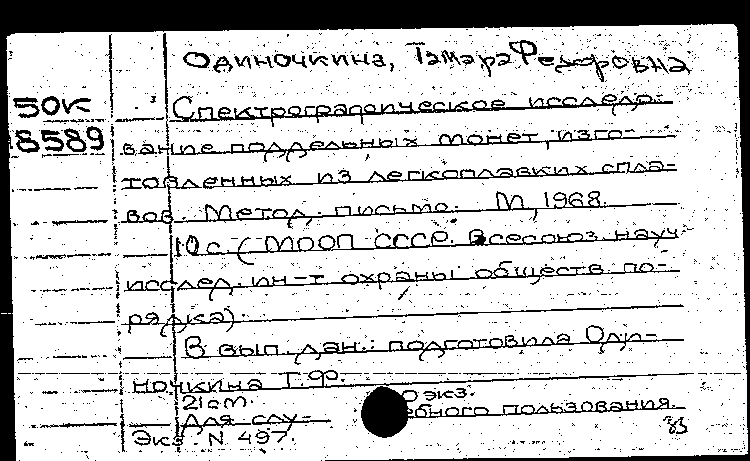 Одиночкина, Тамара Федоровна
50к
8589
Спектрографическое исследо-
вание поддельных монет, изго-
товленных из легкоплавких спла-
вов. Метод. письмо. М, 1968.
10 с. (МООП СССР. Всесоюз науч-
исслед. ин-т охраны обществ. по-
рядка).
В вып. дан.: подготовила Оди-
ночкина Т.Ф.
21 см. экз.
Для слу- ебного пользования.
Экз. N 497.